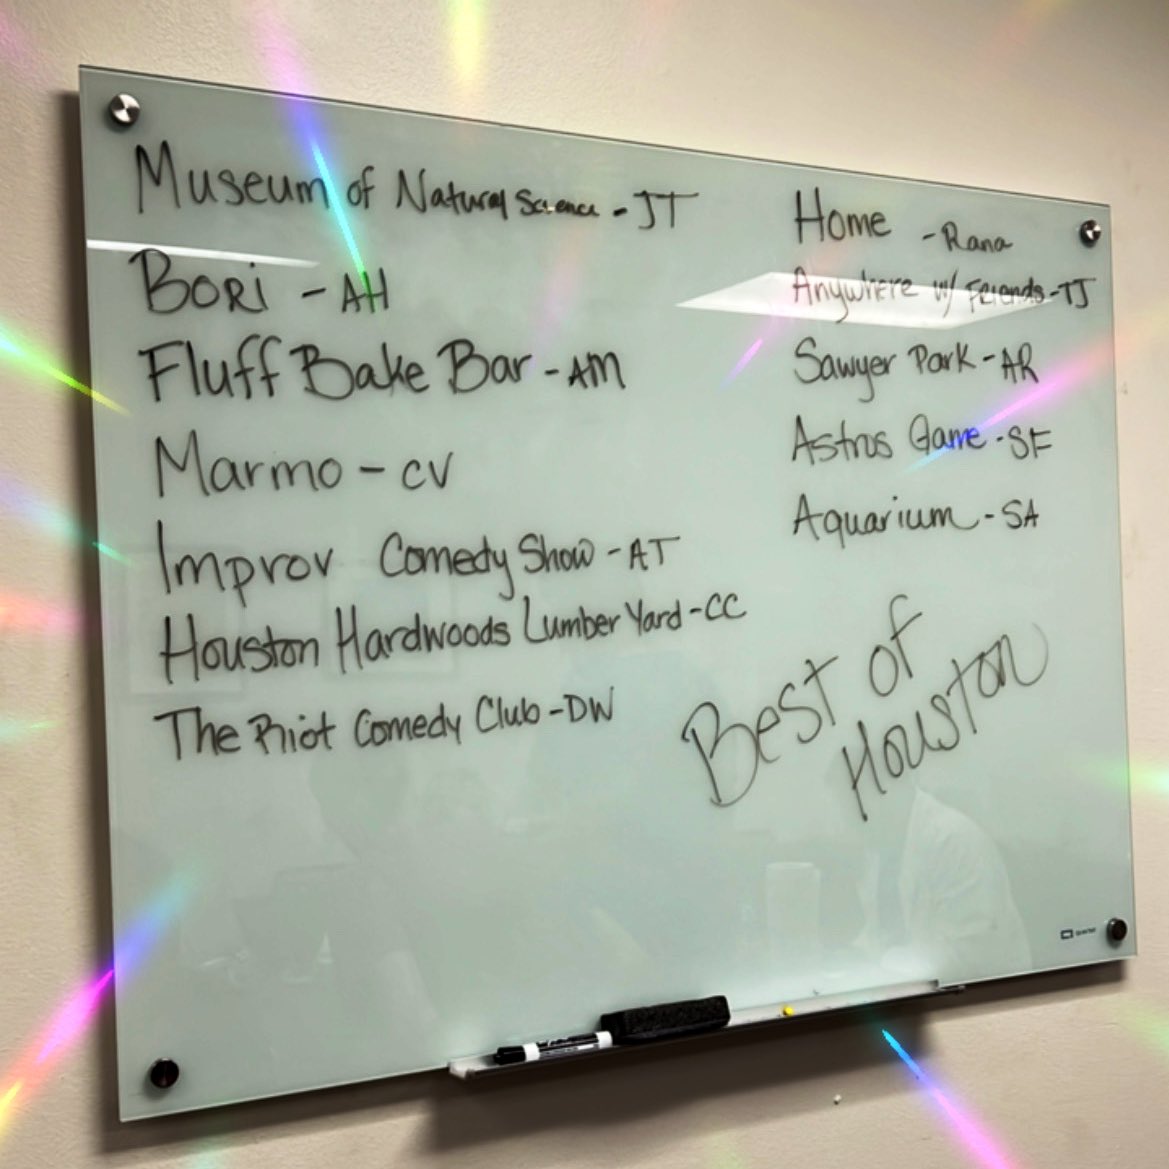 Museum of Natural Science - JT
Bori - AH
Fluff Bake Bar - AM
Marmo - CV
Improv Comedy Show - AT
Houston Hardwoods Lumber Yard - CC
The Riot Comedy Club - DW
Home - Rana
Anywhere w/ Friends - TJ
Sawyer Park - AR
Astros Game - SF
Aquarium - SA
Best of
Houston